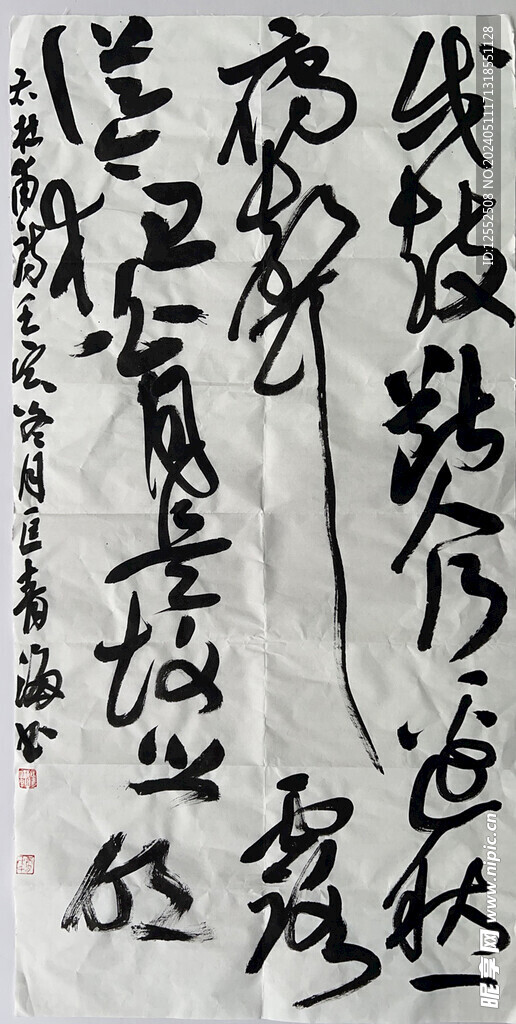 戍鼓斷人行邊秋一
雁聲露
從今夜白月是故乡明
右杜甫詩壬寅冬月匡青海书
ID:12552508 NO:20240511171318551128
昵享网 www.nipic.cn